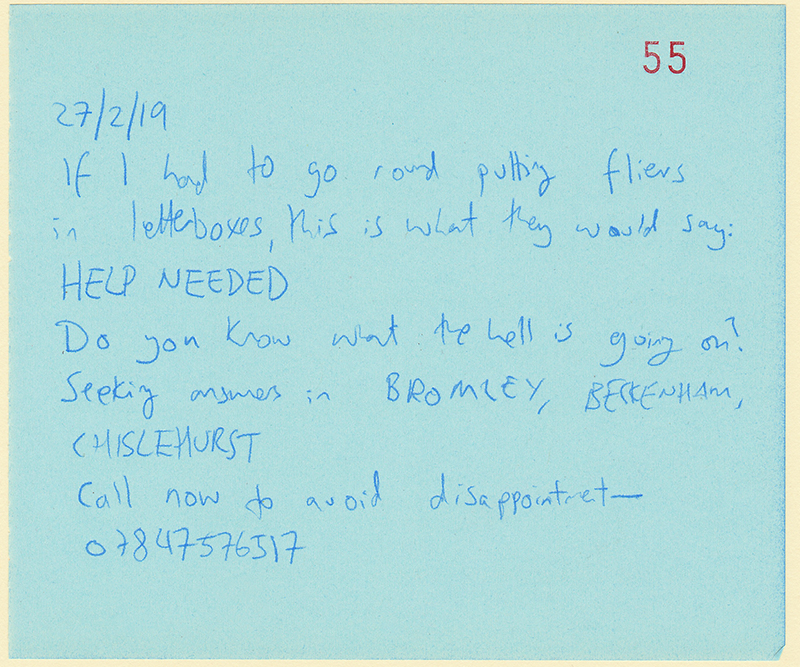 55
27/2/19
If I had to go round putting fliers
in letterboxes, this is what they would say:
HELP NEEDED
Do you know what the hell is going on?
Seeking answers in BROMLEY, BECKENHAM,
CHISLEHURST
Call now to avoid disappointment—
07847576517